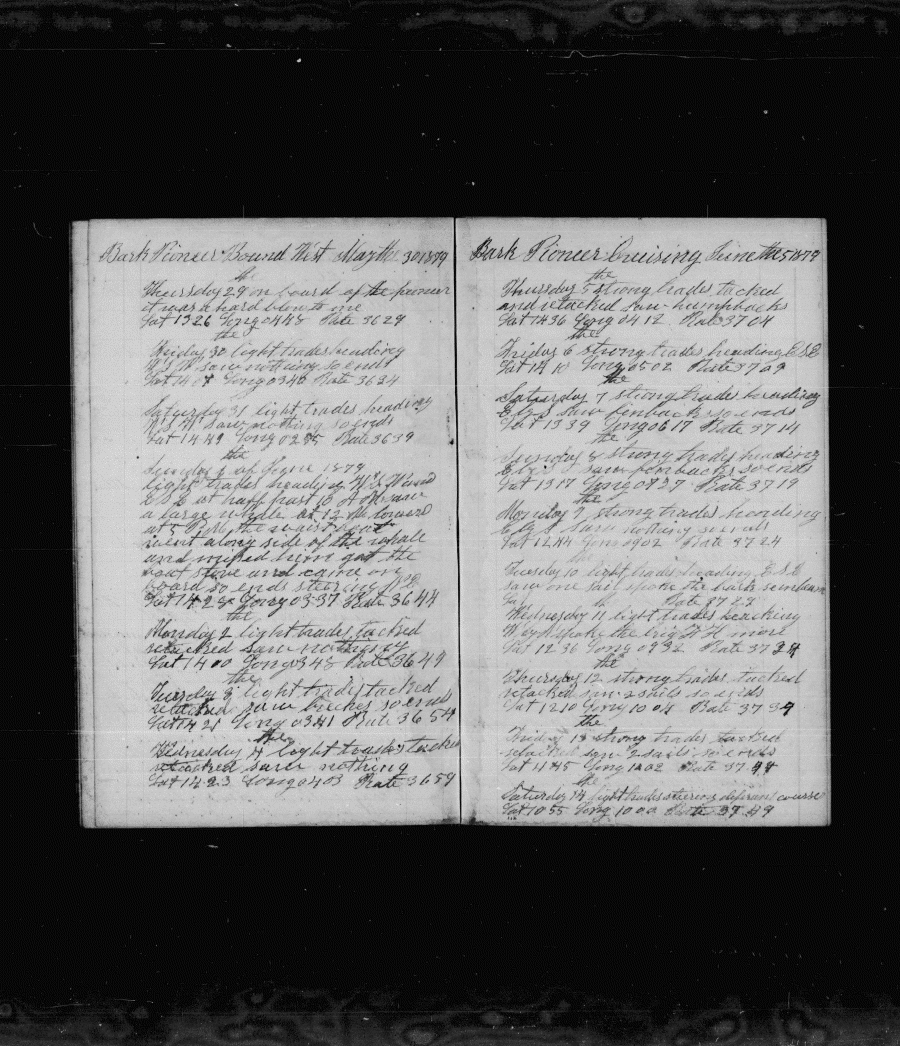 Bark Pioneer Bound West May the 30 1879
the
Thursday 29 on board of the pioneer
it was a hard blow to me
Lat 13 26 Long 04 48 Rate 36 29
the
Friday 30 light trades heading
W S W saw nothing so ends
Lat 14 07 Long 03 40 Rate 36 34
Saturday 31 light trades heading
W S W saw nothing so ends
Lat 14 49 Long 02 Rate 36 39
the
Sunday 1 of June 1879
light trades heading W S W and
E S E at half past 10 A M saw
a large whale at 12 M lowered
at 5 P M the waist boat
went along side of the whale
and missed him got the
boat stove and came on
board so ends steering
Lat 14 28 Long 03 37 Rate 36 44
the
Monday 2 light trades tacked
retacked saw nothing
Lat 14 00 Long 03 48 Rate 36 49
the
Tuesday 3 light trades tacked
retacked saw breches so ends
Lat 14 21 Long 03 41 Rate 36 54
the
Wednesday 4 light trades tacked
retacked saw nothing
Lat 14 23 Long 04 03 Rate 36 59
Bark Pioneer Cruising June the 5 1879
the
Thursday 5 strong trades tacked
and retacked saw humpbacks
Lat 14 36 Long 04 12 Rate 37 04
the
Friday 6 strong trades heading E S E
Lat 14 10 Long 05 02 Rate 37 09
the
Saturday 7 strong trades heading
E by S saw finbacks so ends
Lat 13 39 Long 06 17 Rate 37 14
the
Sunday 8 strong trades heading
E by S saw finbacks so ends
Lat 13 17 Long 07 37 Rate 37 19
the
Monday 9 strong trades heading
E by S saw nothing so ends
Lat 12 44 Long 09 02 Rate 37 24
Tuesday 10 light trades heading E S E
saw one sail spoke the bark
Rate 37 27
Wednesday 11 light trades
W by N spoke the brig F H more
Lat 12 36 Long 09 32 Rate 37 24
the
Thursday 12 strong trades tacked
retacked saw 2 sails so ends
Lat 12 10 Long 10 04 Rate 37 39
the
Friday 13 strong trades tacked
retacked saw 2 sails so ends
Lat Long 10 02 Rate 37 44
the
Saturday 14 light trades stering diferant course
Lat 10 55 Long 10 00 Rate 37 49